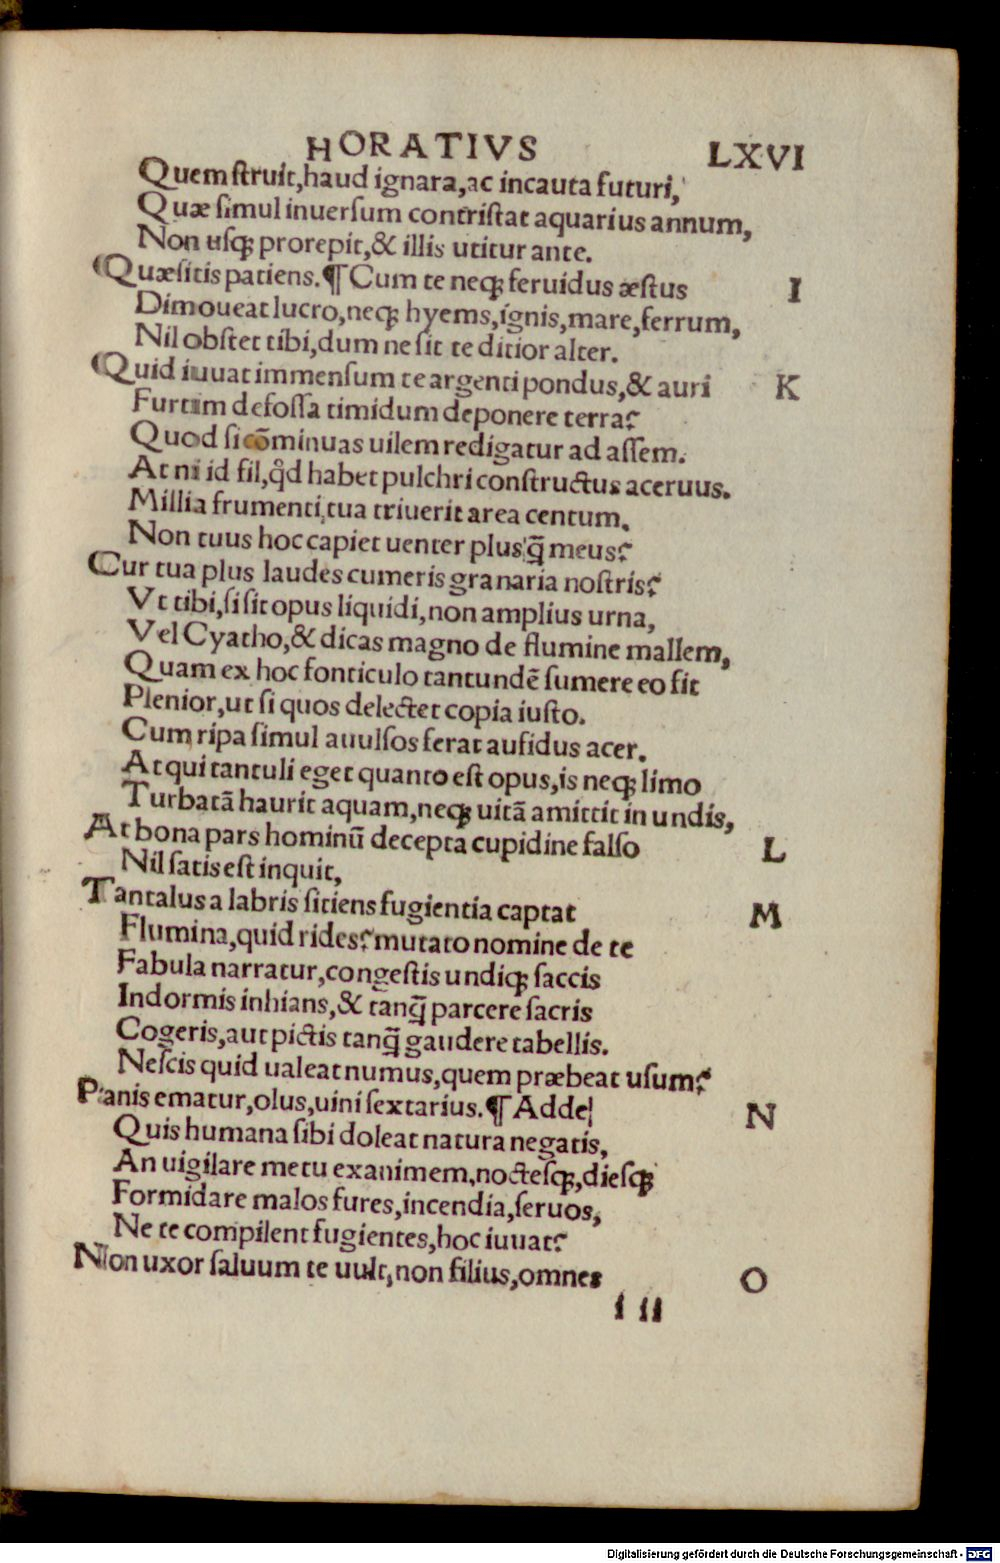 HORATIVS LXVI
Quem ſtruit,haud ignara,ac incauta futuri,
Quæ ſimul inuerſum contriſtat aquarius annum,
Non uſqꝫ prorepit,& illis utitur ante.
Quæſitis patiens.¶ Cum te neqꝫ feruidus æſtus I
Dimoueat lucro,neqꝫ hyems,ignis,mare,ferrum,
Nil obſtet tibi,dum ne ſit te ditior alter.
Quid iuuat immenſum te argenti pondus,& auri K
Furtim defoſſa timidum deponere terra?
Quod ſi cõminuas uilem redigatur ad aſſem.
At ni id fit,qd habet pulchri conſtructus aceruus.
Millia frumenti,tua triuerit area centum.
Non tuus hoc capiet uenter plus q̃ meus?
Cur tua plus laudes cumeris granaria noſtris?
Vt tibi,ſi ſit opus liquidi,non amplius urna,
Vel Cyatho,& dicas magno de flumine mallem,
Quam ex hoc fonticulo tantundẽ ſumere eo fit
Plenior,ut ſi quos delectet copia iuſto.
Cum ripa ſimul auulſos ferat aufidus acer.
At qui tantuli eget quanto eſt opus,is neqꝫ limo
Turbatã haurit aquam,neqꝫ uitã amittit in undis,
At bona pars hominũ decepta cupidine falſo L
Nil ſatis eſt inquit,
Tantalus a labris ſitiens fugientia captat M
Flumina,quid rides?mutato nomine de te
Fabula narratur,congeſtis undiqꝫ ſaccis
Indormis inhians,& tanq̃ parcere ſacris
Cogeris,aut pictis tanq̃ gaudere tabellis.
Neſcis quid ualeat numus,quem præbeat uſum?
Panis ematur,olus,uini ſextarius.¶ Adde N
Quis humana ſibi doleat natura negatis,
An uigilare metu exanimem,nocteſqꝫ,dieſqꝫ
Formidare malos fures,incendia,ſeruos,
Ne te compilent fugientes,hoc iuuat?
Non uxor ſaluum te uult,non filius,omnes O
l ii
Digitalisierung gefördert durch die Deutsche Forschungsgemeinschaft - DFG